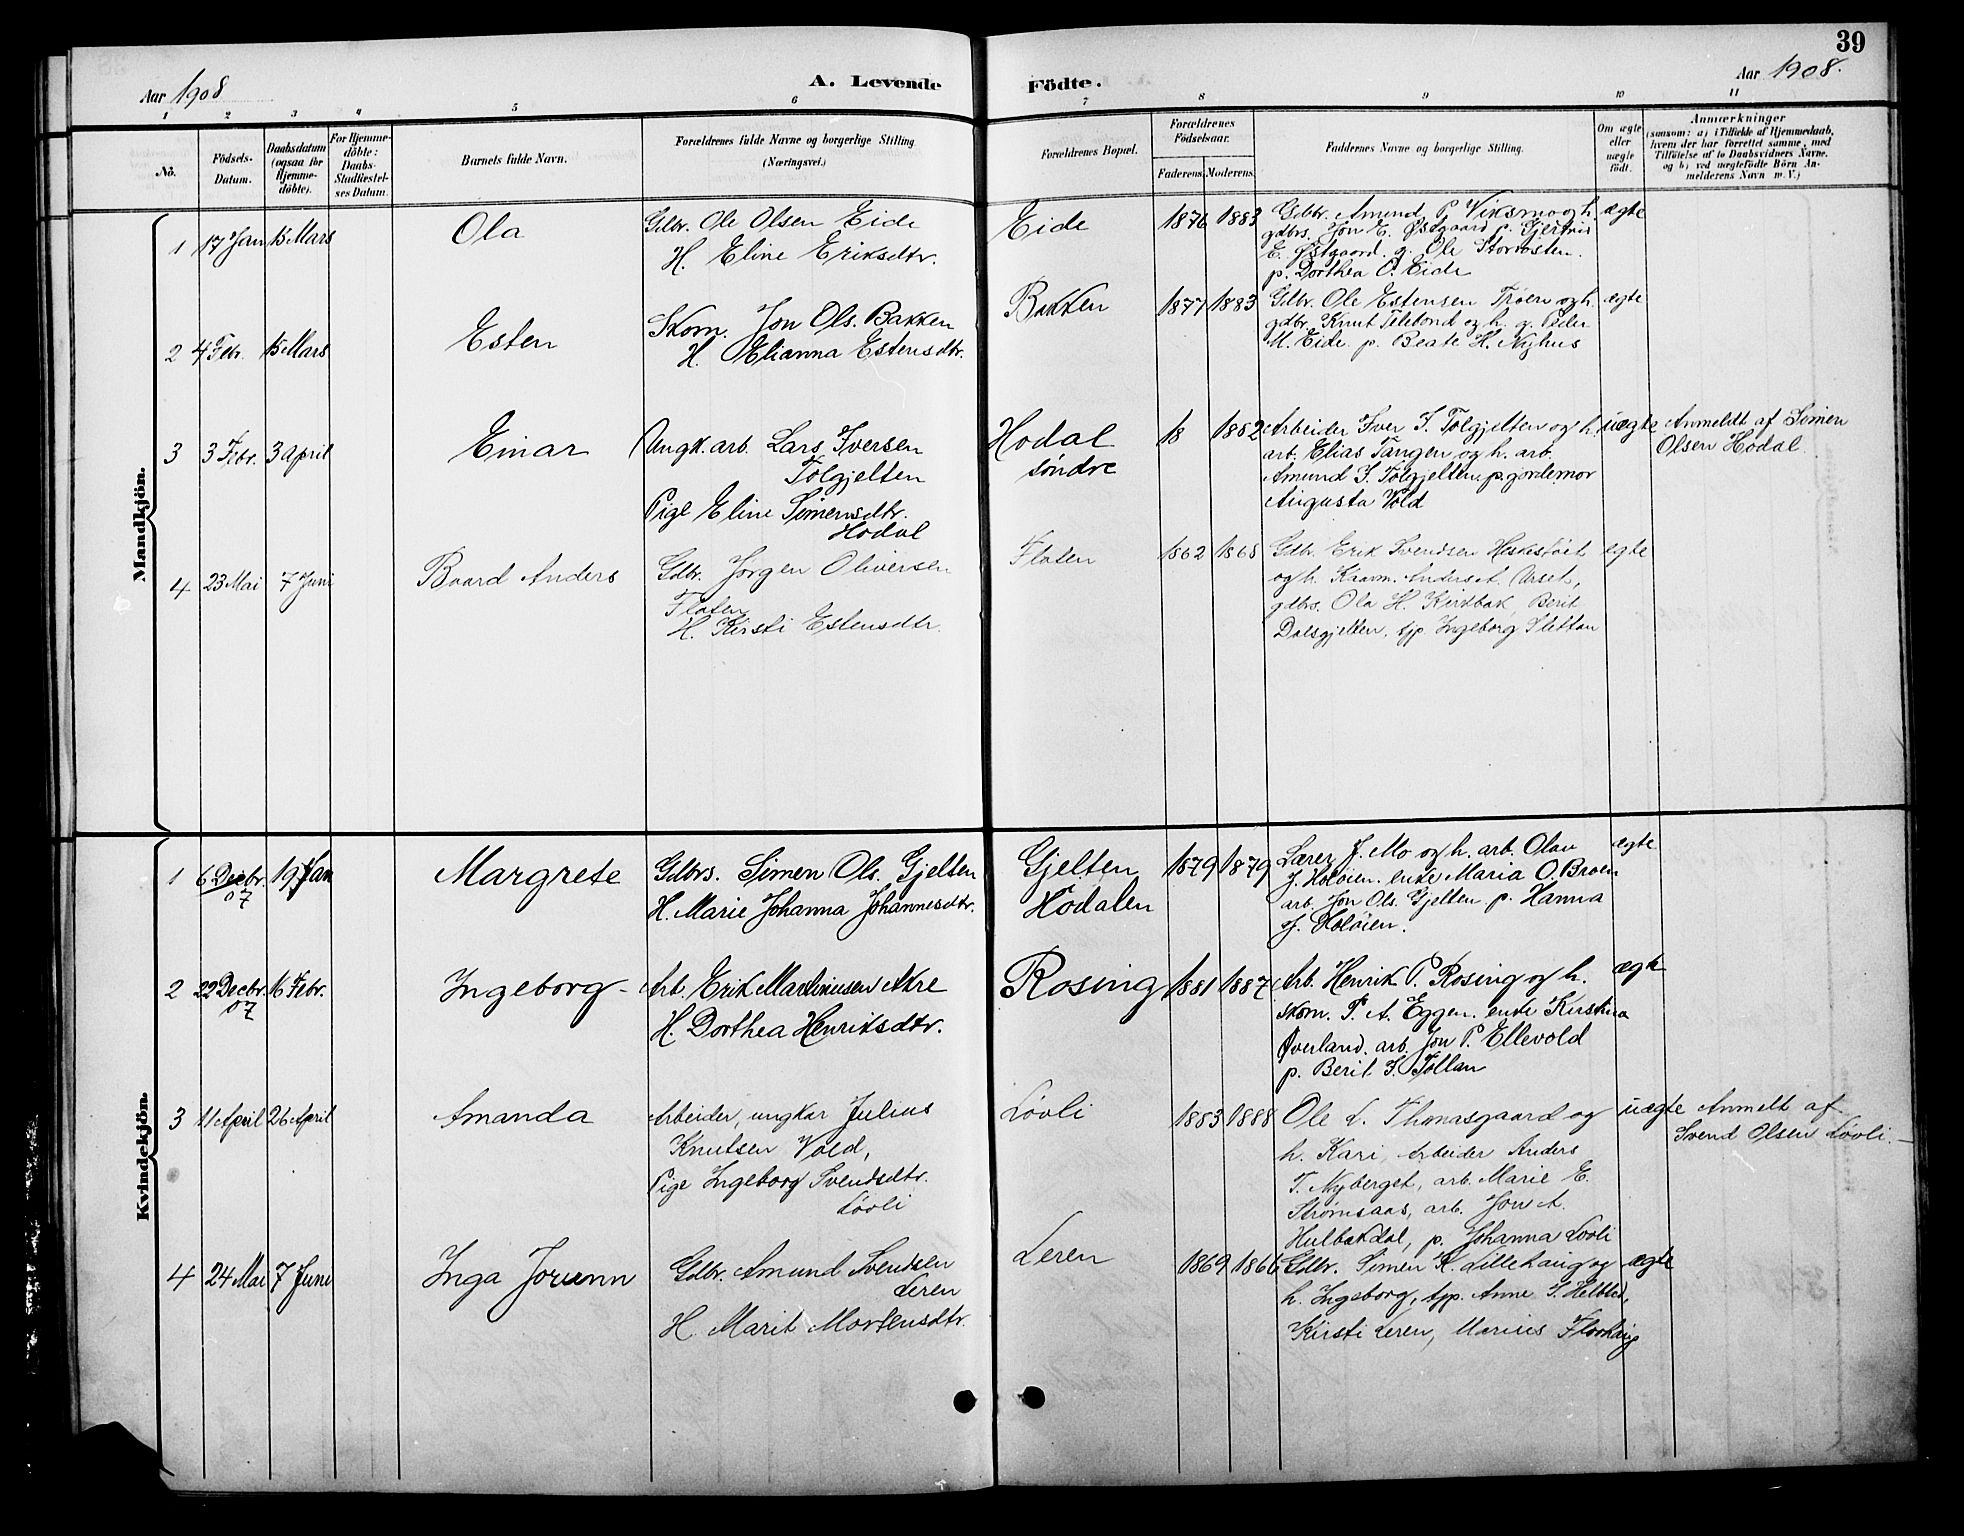 39
Aar 1908
A. Levende Födte.
Aar 1908.
1 2 3 4 5 6 7 8 9 10 11
No.
Födsels-Datum.
Daabsdatum (ogsaa for Hjemme-döbte).
For Hjemme-döbte: Daabs-Stadfæstel-ses Datum.
Barnets fulde Navn.
Forældrenes fulde Navne og borgerlige Stilling
(Næringsvei.)
Forældrenes Bopæl.
Forældrenes Födselsaar.
Faderens. Moderens.
Faddernes Navne og borgerlige Stilling.
Om ægte eller uægte födt.
Anmærkninger
(saasom: a) i Tilfælde af Hjemmedaab,
hvem der har forrettet samme, med
Tilföielse af to Daabsvidners Navne.
og b) ved uægtefödte Börn An-
melderens Navn m. V.)
Mandkjön.
1 17 Jan 15 Mars Ola
Gdbr. Ole Olsen Eide
H. Eline Eriksdtr.
Eide 1876 1883
Gdbr. Amund P. Viksmo og h.
gdbrs. Jon E. Østgaard p. Gjertrud
E. Østgaard. g. Ole Storrøsten.
p. Dorthea O. Eide
ægte
2 4 Febr. 15 Mars Esten
Skom. Jon Ols. Bakken
H. Elianna Estensdtr.
Bakken 1877 1883
Gdbr. Ole Estensen Trøen og h.
gdbr. Knut Telebond og h. g. Peder
M. Eide p. Beate H. Nyhus
ægte
3 3 Febr. 3 april Einar
Ungk. arb. Lars Iversen
Tolgjelten
Pige Eline Simensdtr.
Hodal
Hodal
søndre
18 1882
Arbeider Iver I. Tolgjelten og h.
arb. Elias Tangen og h. arb.
Amund I. Tolgjelten. p. jordemor
Augusta Vold
uægte
Anmeldt af Simen
Olsen Hodal.
4 23 Mai 7 Juni Baard Anders
Gdbr. Jørgen Oliversen
Flaten
H. Kirsti Estensdtr.
Flaten 1862 1868
Gdbr. Erik Svendsen
og h. Anders A. Urset,
gdbrs. Ola H. Kirkbak, Berit
Dalsgjelten, tjp. Ingeborg Slettan
ægte
Kvindekjön.
1 6 Decbr. 07 19 Jan Margrete
Gdbrs. Simen Ols. Gjelten
H. Marie Johanna Johannesdtr.
Gjelten
Hodalen
1879 1879
Lærer J. Mo og h. arb. Olau
J. Holøien. enke Maria O. Broen
arb. Jon Ols. Gjelten p. Hanna
J. Holøien.
ægte
2 22 Decbr. 07 16 Febr. Ingeborg
Arb. Erik Martinusen Akre
H. Dorthea Henriksdtr.
Rosing 1881 1887
Arb. Henrik P. Rosing og h.
skom. P. A. Eggen. enke Kirstina
Øverland. arb. Jon P. Ellevold
p. Berit I. Tollan
ægte
3 11 April 26 April Amanda
Arbeider, ungkar Julius
Knutsen Vold,
Pige Ingeborg Svendsdtr.
Løvli
Løvli 1883 1888
Ole L. Thomasgaard og
h. Kari, Arbeider Anders
T. Nyberget, arb. Marie E.
Strømsaas, arb. Jon A.
Hulbakdal, p. Johanna Løvli
uægte
Anmelt af
Svend Olsen Løvli.
4 24 Mai 7 Juni Inga Jorunn
Gdbr. Amund Svendsen
Leren
H. Marit Mortensdtr.
Leren 1869 1866
Gdbr. Simen K. Lillehaug og
h. Ingeborg, tjp. Anne I.
Kirsti Leren, Marius
ægte